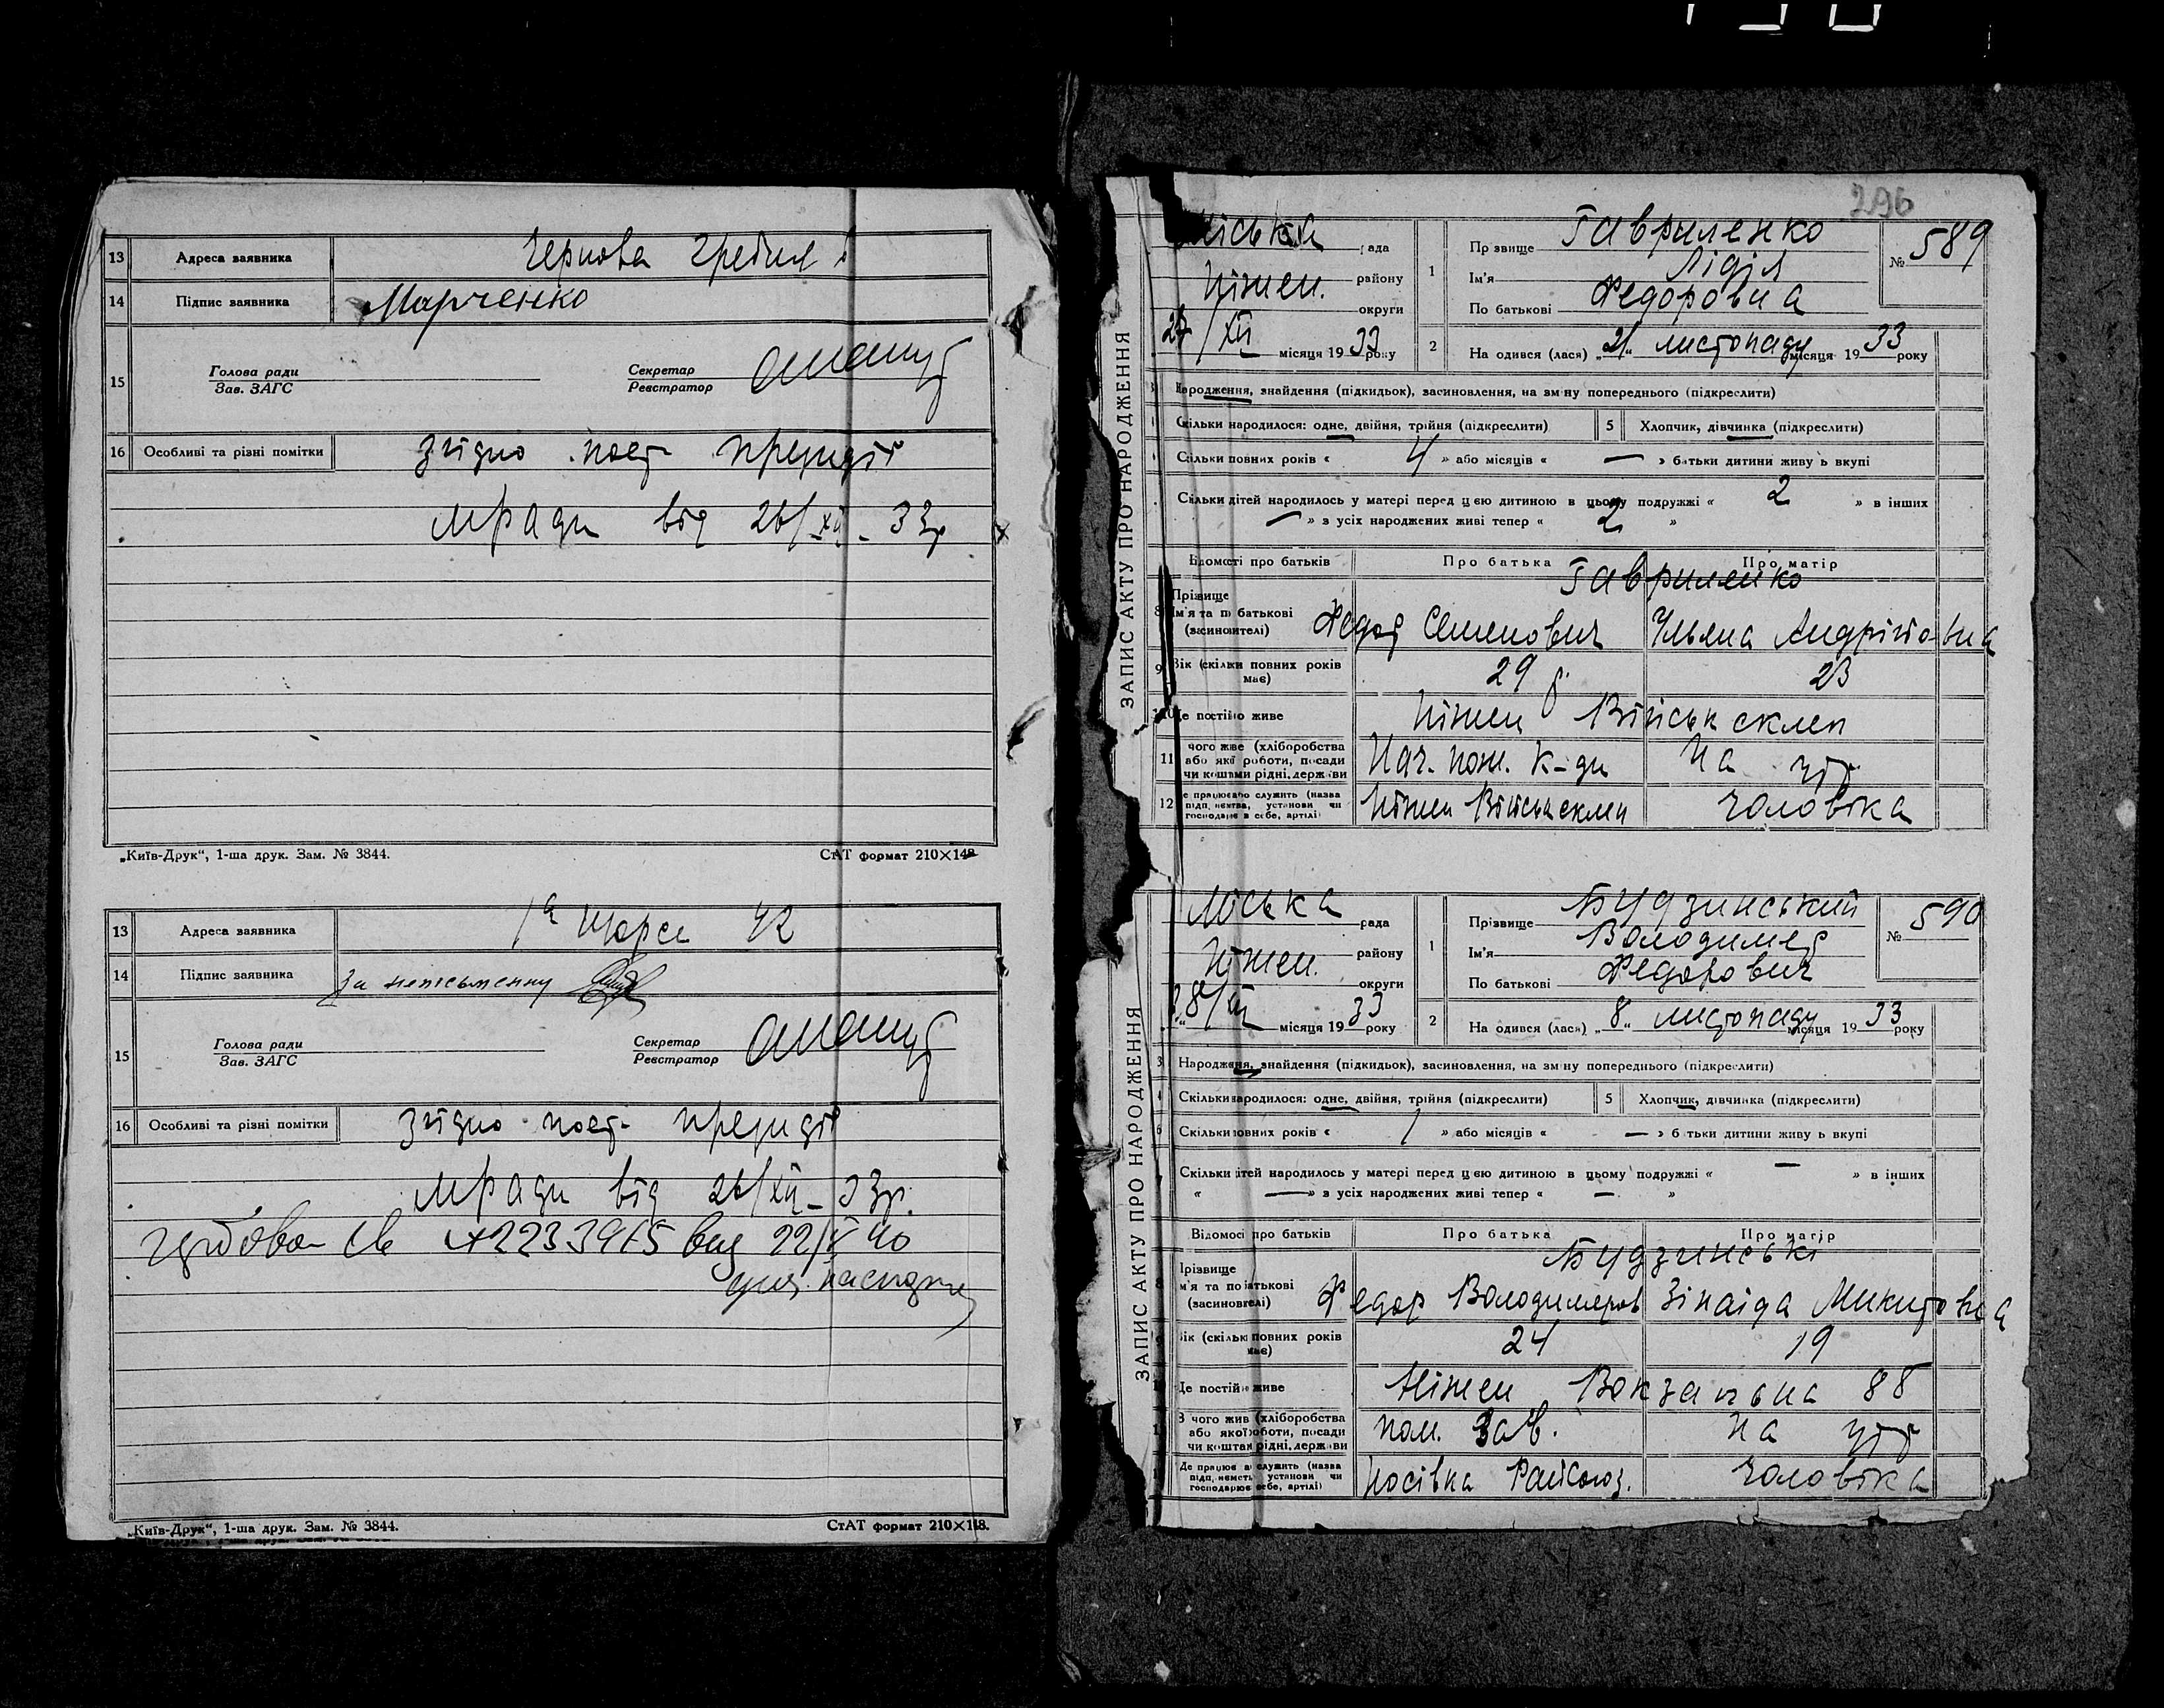 13 Адреса заявника Чернова Гребля
14 Підпис заявника Марченко
15 Голова ради
Зав. ЗАГС
Секретар
Реєстратор
16 Особливі та різні помітки Згідно пост президії
м/ради від 26/XII-33р
„Київ-Друк“, 1-ша друк. Зам. № 3844. СтАТ формат 210×148
13 Адреса заявника 42
14 Підпис заявника За неписьменну
15 Голова ради
Зав. ЗАГС
Секретар
Реєстратор
16 Особливі та різні помітки Згідно пост президії
м/ради від 26/XII-33р.
св 22/V 40
„Київ-Друк“, 1-ша друк. Зам. № 3844. СтАТ формат 210×148.
296
ЗАПИС АКТУ ПРО НАРОДЖЕННЯ
Міська рада
Ніжен. району
округи
27/XII місяця 1933 року
1 Прізвище Гавриленко
Ім'я Лідія
По батькові Федоровна
№ 589
2 Народився (лася) „21“ листопаду місяця 1933 року
Народження, знайдення (підкидьок), засиновлення, на зміну попереднього (підкреслити)
Скільки народилося: одне, двійня, трійня (підкреслити) 5 Хлопчик, дівчинка (підкреслити)
Скільки повних років « 4 » або місяців « — » батьки дитини живуть вкупі
Скільки дітей народилось у матері перед цією дитиною в цьому подружжі « 2 » в інших
— » з усіх народжених живі тепер « 2 »
Відомості про батьків Про батька Про матір
Гавриленко
8 Прізвище
Ім'я та по батькові
(засиновителі) Федор Семенович Ульяна Андріївна
9 Вік (скільки повних років має) 29 р. 23
10 Де постійно живе Ніжен Військ склеп
11 З чого живе (хліборобства
або якої роботи, посади
чи коштами рідні, держави Нач. пож. к-ди На утр
12 Де працює або служить (назва
підприємства, установи чи
господарює в себе, артілі) Ніжен Військсклеп чоловіка
ЗАПИС АКТУ ПРО НАРОДЖЕННЯ
Міська рада
Ніжен. району
округи
28/XII місяця 1933 року
1 Прізвище Будзинський
Ім'я Володимер
По батькові Федорович
№ 590
2 Народився (лася) „8“ листопаду місяця 1933 року
3 Народження, знайдення (підкидьок), засиновлення, на зміну попереднього (підкреслити)
Скільки народилося: одне, двійня, трійня (підкреслити) 5 Хлопчик, дівчинка (підкреслити)
6 Скільки повних років « 1 » або місяців « — » батьки дитини живуть вкупі
Скільки дітей народилось у матері перед цією дитиною в цьому подружжі « — » в інших
« — » з усіх народжених живі тепер « — »
Відомості про батьків Про батька Про матір
Будзинські
Прізвище
Ім'я та по батькові
(засиновителі) Федор Володимеров Зінаіда Микитовна
Вік (скільки повних років має) 24 19
Де постійно живе Ніжен Вокзальна 88
З чого живе (хліборобства
або якої роботи, посади
чи коштами рідні, держави пом. зав. На утр
Де працює або служить (назва
підприємства, установи чи
господарює в себе, артілі) Носівка Райсоюз. чоловіка